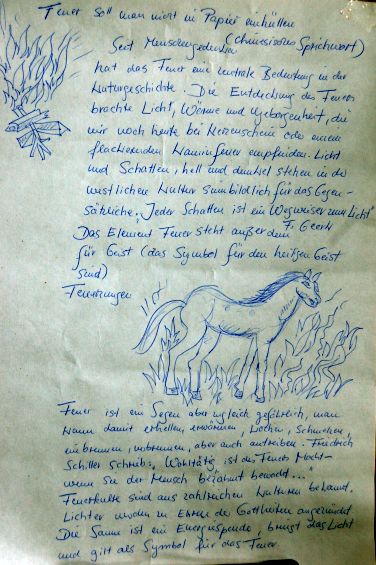 Feuer soll man nicht in Papier einhüllen
(Chinesisches Sprichwort)
Seit Menschengedenken
hat das Feuer eine zentrale Bedeutung in der
Kulturgeschichte. Die Entdeckung des Feuers
brachte Licht, Wärme und Geborgenheit, die
wir noch heute bei Kerzenschein oder einem
flackernden Kaminfeuer empfinden. Licht
und Schatten, hell und dunkel stehen in der
westlichen Kultur sinnbildlich für das Gegen-
sätzliche. "Jeder Schatten ist ein Wegweiser zum Licht"
Das Element Feuer steht außerdem
für Geist (das Symbol für den heißen Geist
sind)
Feuerzungen
Feuer ist ein Segen aber zugleich gefährlich, man
kann damit erhellen, erwärmen, kochen, schmelzen,
einbrennen, verbrennen, aber auch antreiben. Friedrich
Schiller schrieb: "Wohltätig ist des Feuers Macht -
wenn sie der Mensch bezähmt bewacht..."
Feuerkulte sind aus zahlreichen Kulturen bekannt.
Lichter werden zu Ehren der Gottheiten angezündet
Die Sonne ist ein Energiespender, bringt das Licht
und gilt als Symbol für das Feuer.